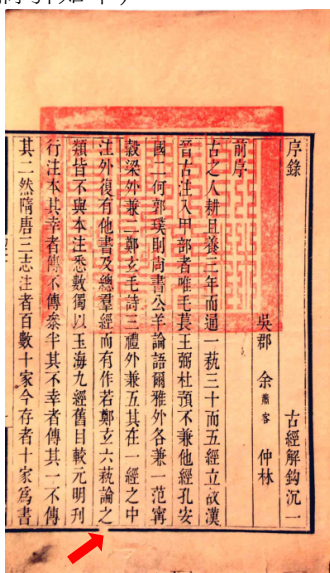 序錄
古經解鉤沉一
吳郡 余蕭客 仲林
前序
古之人耕且養三年而通一蓺三十而五經立故漢
晉古注入甲部者唯毛萇王弼杜預不兼他經孔安
國二何郭璞則尚書公羊論語爾雅外各兼一范甯
穀梁外兼二鄭玄毛詩三禮外兼五其在一經之中
注外復有他書及總羣經而有作若鄭玄六蓺論之
類皆不與本注悉數獨以玉海九經舊目較元明刊
行注本其幸者傳不傳參半其不幸者傳其一不傳
其二然隋唐三志注者百數十家今存者十家爲書